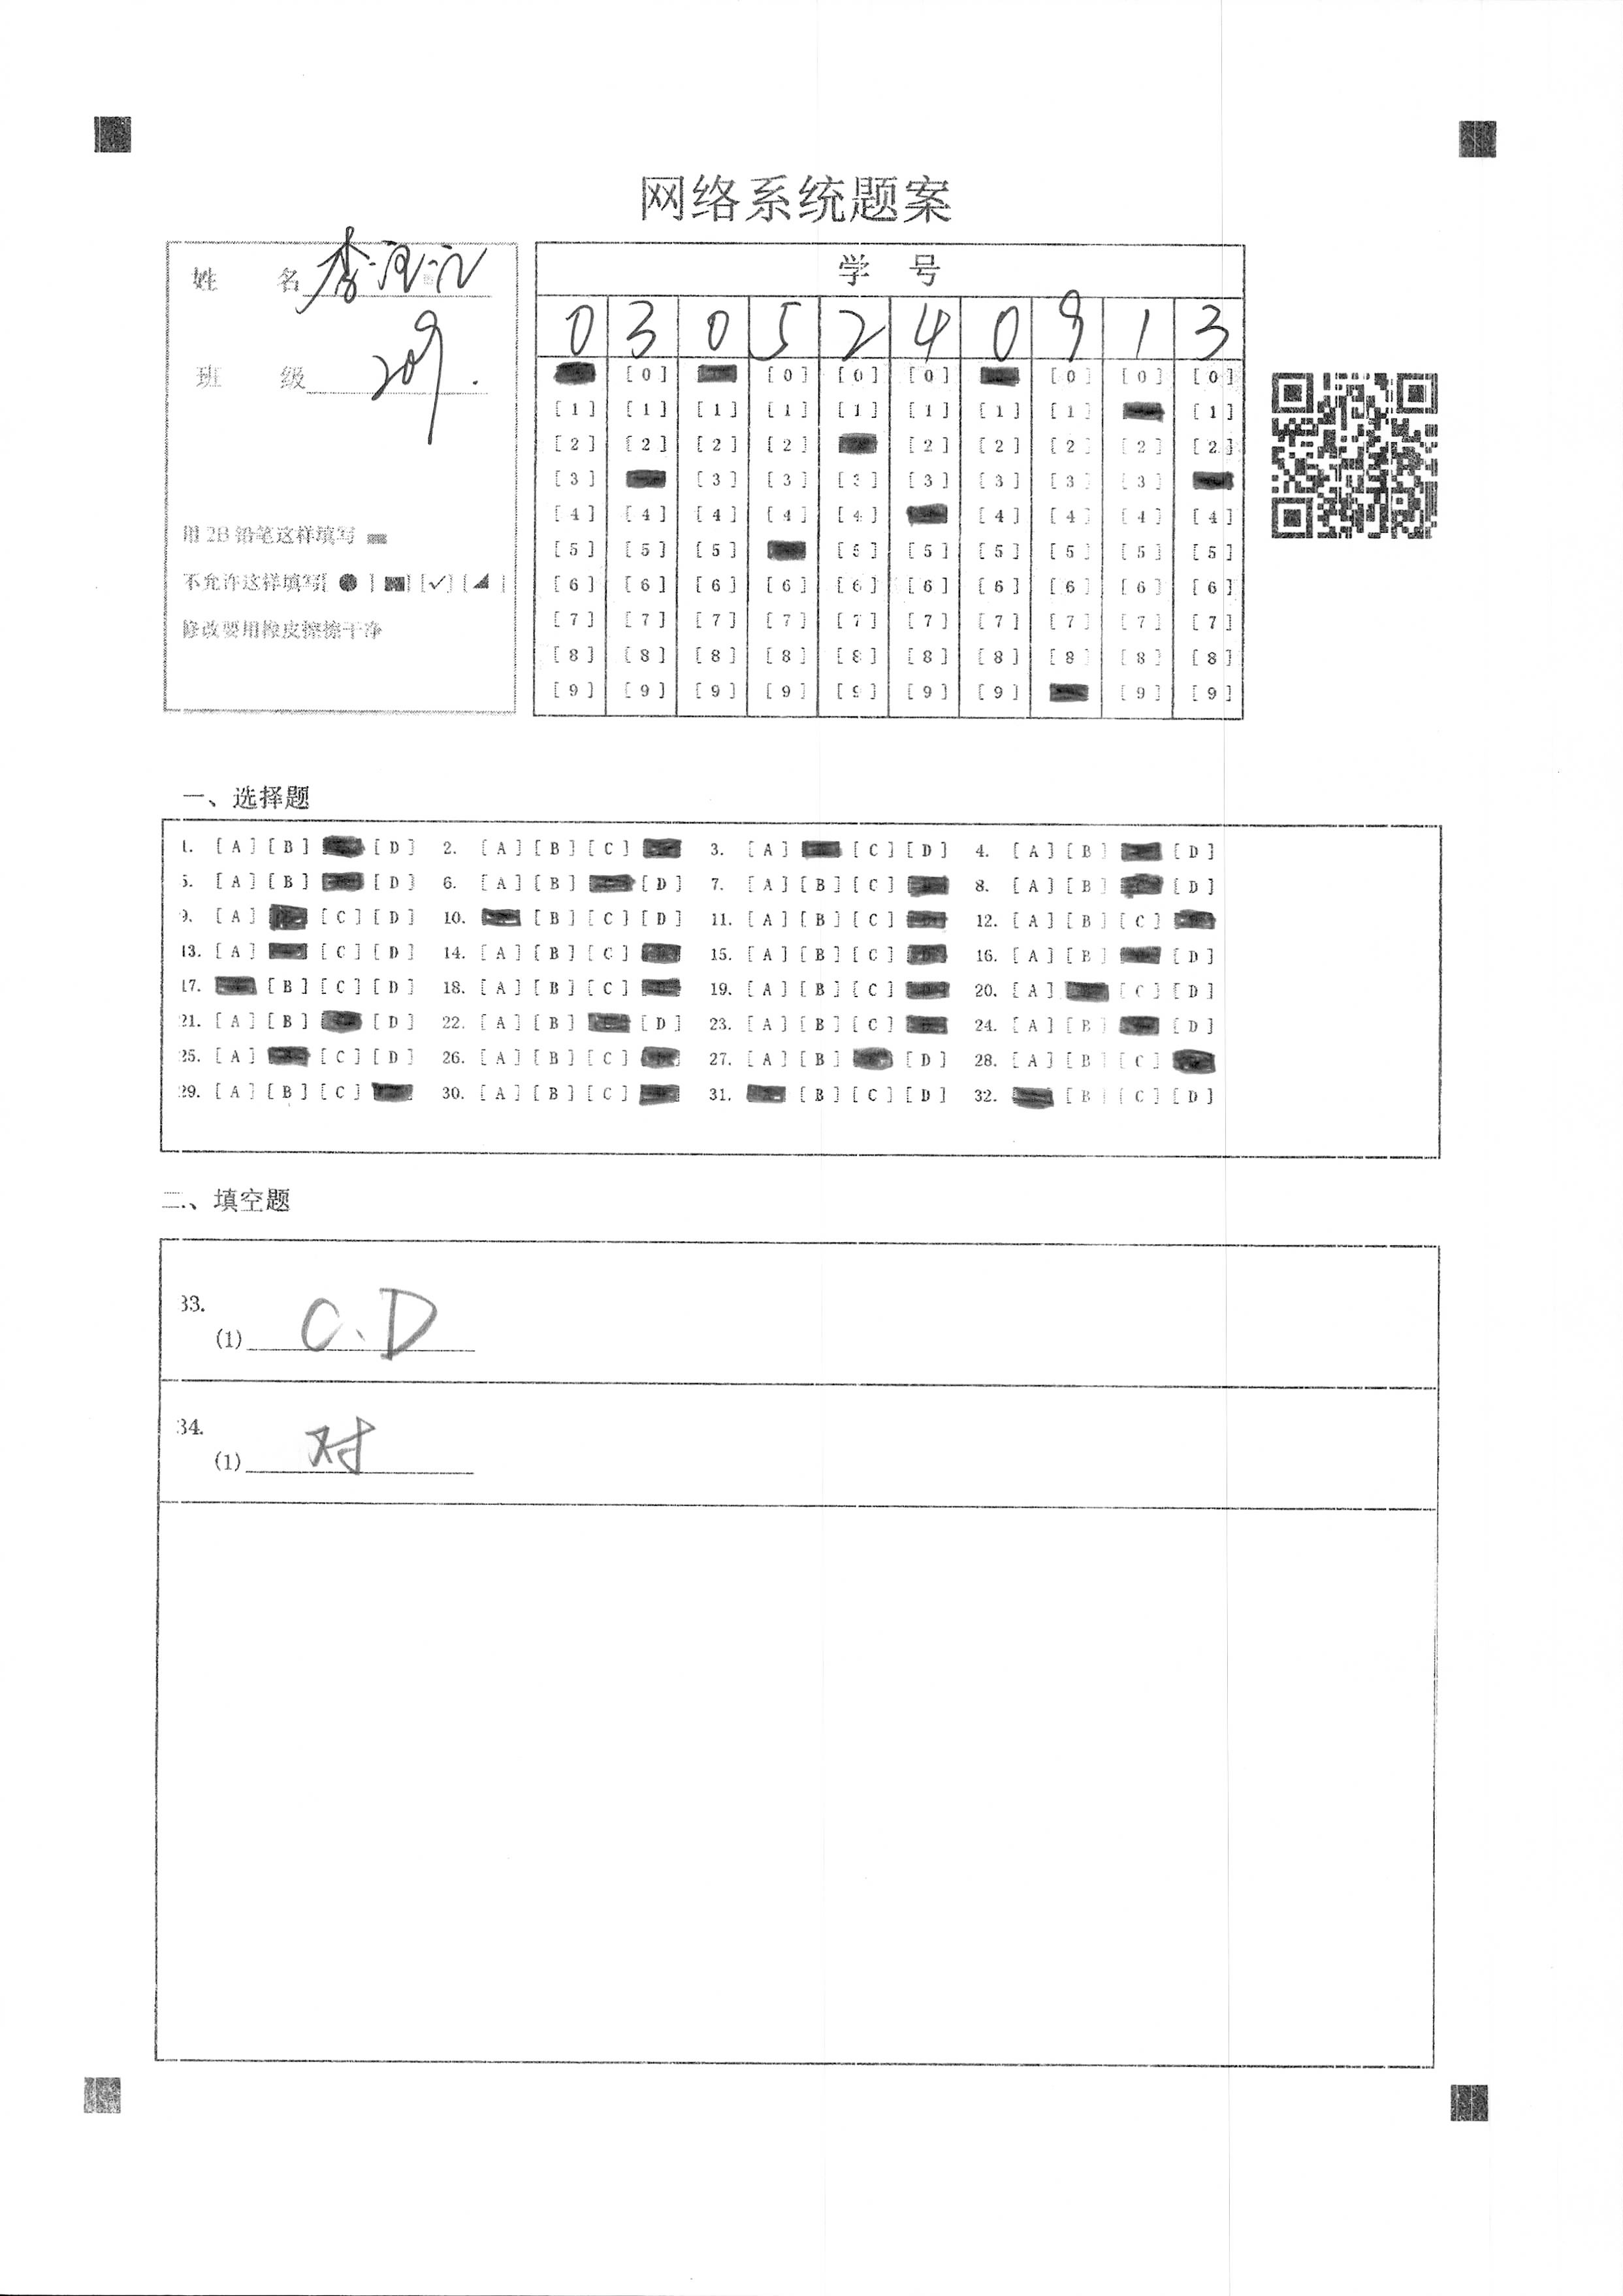 网络系统题案
姓 名
班 级 209.
用 2B 铅笔这样填写
不允许这样填写[ ● ] [■] [✓] [◢ ]
修改要用橡皮擦擦干净
学 号
0 3 0 5 2 4 0 9 1 3
[0] [0] [0] [0] [0] [0] [0]
[1] [1] [1] [1] [1] [1] [1] [1] [1]
[2] [2] [2] [2] [2] [2] [2] [2] [2]
[3] [3] [3] [3] [3] [3] [3] [3]
[4] [4] [4] [4] [4] [4] [4] [4] [4]
[5] [5] [5] [5] [5] [5] [5] [5] [5]
[6] [6] [6] [6] [6] [6] [6] [6] [6] [6]
[7] [7] [7] [7] [7] [7] [7] [7] [7] [7]
[8] [8] [8] [8] [8] [8] [8] [8] [8] [8]
[9] [9] [9] [9] [9] [9] [9] [9] [9]
一、选择题
1. [A] [B] [D] 2. [A] [B] [C] 3. [A] [C] [D] 4. [A] [B] [D]
5. [A] [B] [D] 6. [A] [B] [D] 7. [A] [B] [C] 8. [A] [B] [D]
9. [A] [C] [D] 10. [B] [C] [D] 11. [A] [B] [C] 12. [A] [B] [C]
13. [A] [C] [D] 14. [A] [B] [C] 15. [A] [B] [C] 16. [A] [B] [D]
17. [B] [C] [D] 18. [A] [B] [C] 19. [A] [B] [C] 20. [A] [C] [D]
21. [A] [B] [D] 22. [A] [B] [D] 23. [A] [B] [C] 24. [A] [B] [D]
25. [A] [C] [D] 26. [A] [B] [C] 27. [A] [B] [D] 28. [A] [B] [C]
29. [A] [B] [C] 30. [A] [B] [C] 31. [B] [C] [D] 32. [B] [C] [D]
二、填空题
33.
(1) C、D
34.
(1) 对